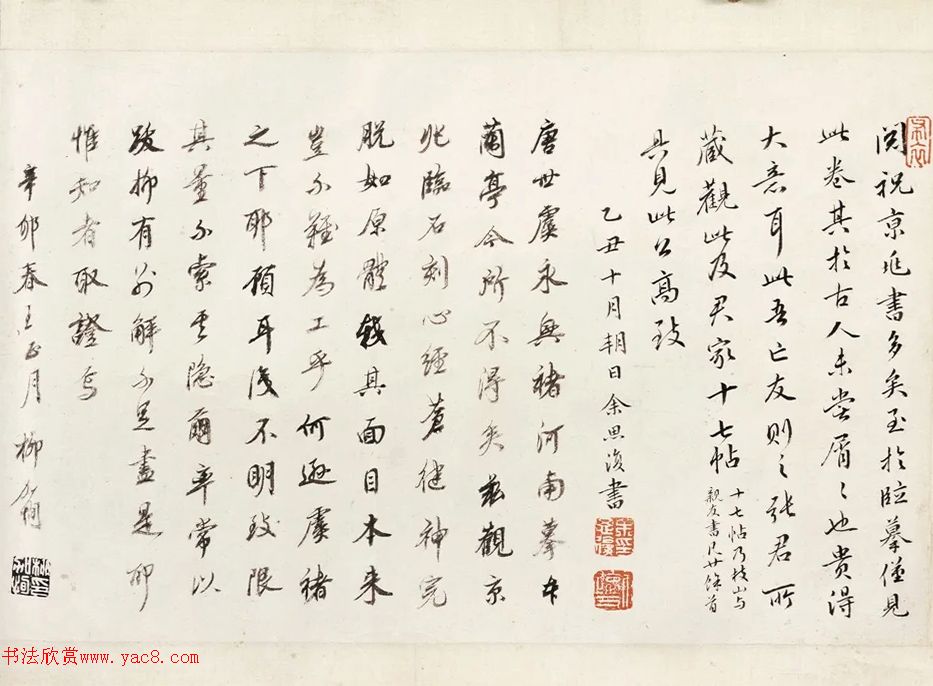 閱祝京兆書多矣至於臨摹僅見
此卷其於古人未嘗屑々也貴得
大意耳此吾亡友則之張君所
藏觀此及君家十七帖
十七帖乃枝山与
親友書尺廿餘首
具見此公高致
乙丑十月朝日余思復書
唐世虞永興褚河南摹本
蘭亭今所不得矣茲觀京
兆臨石刻心經蒼健神完
脫如原體我其面目本来
豈不難為工乎何遜虞褚
之下耶顧耳淺不明致限
其量不索其隱爾率常以
跋柳有若解不足盡是耶
惟知者取證焉
辛卯春王正月柳
书法欣赏www.yac8.com